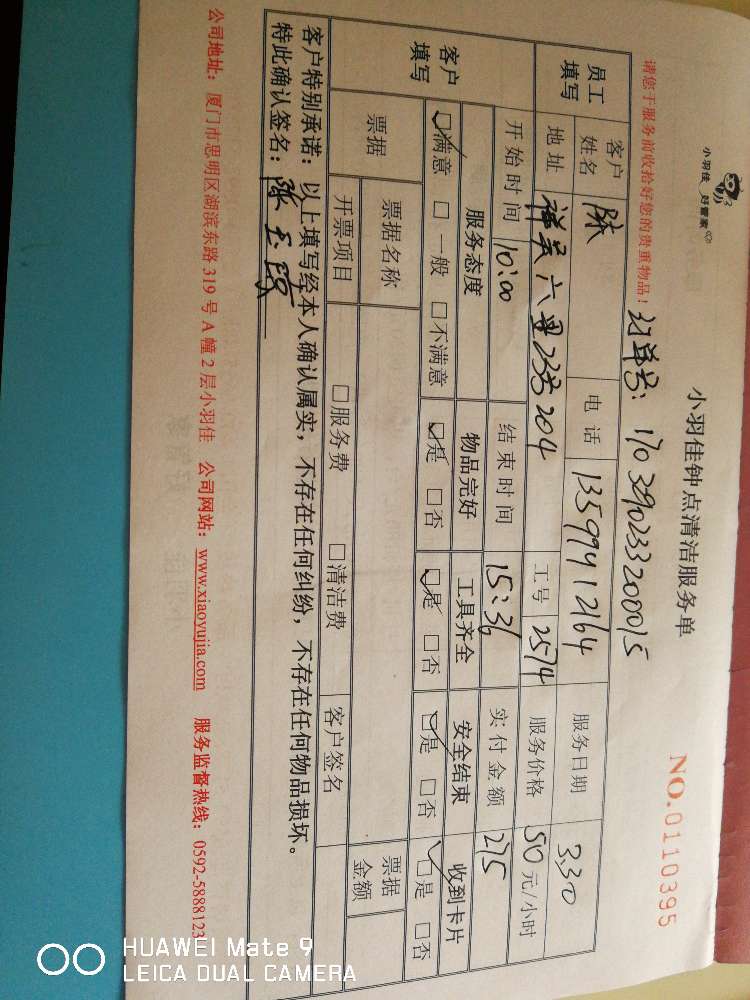 小羽佳 好管家
小羽佳钟点清洁服务单
NO.0110395
请您于服务前收拾好您的贵重物品！
订单号：1703290233200015
员工填写 客户姓名 陈 电话 13599941264 服务日期 3.30
地址 祥吴六里23号204 工号 2574 服务价格 50元/小时
开始时间 10:00 结束时间 15:36 实付金额 275
客户填写 服务态度 物品完好 工具齐全 安全结束 收到卡片
☑满意 □一般 □不满意 ☑是 □否 ☑是 □否 ☑是 □否 ☑是 □否
票据 票据名称 票据金额
开票项目 □服务费 □清洁费 客户签名
客户特别承诺：以上填写经本人确认属实，不存在任何纠纷，不存在任何物品损坏。
特此确认签名：陈玉
公司地址：厦门市思明区湖滨东路319号A幢2层小羽佳 公司网站：www.xiaoyujia.com 服务监督热线：0592-5888123
HUAWEI Mate 9
LEICA DUAL CAMERA